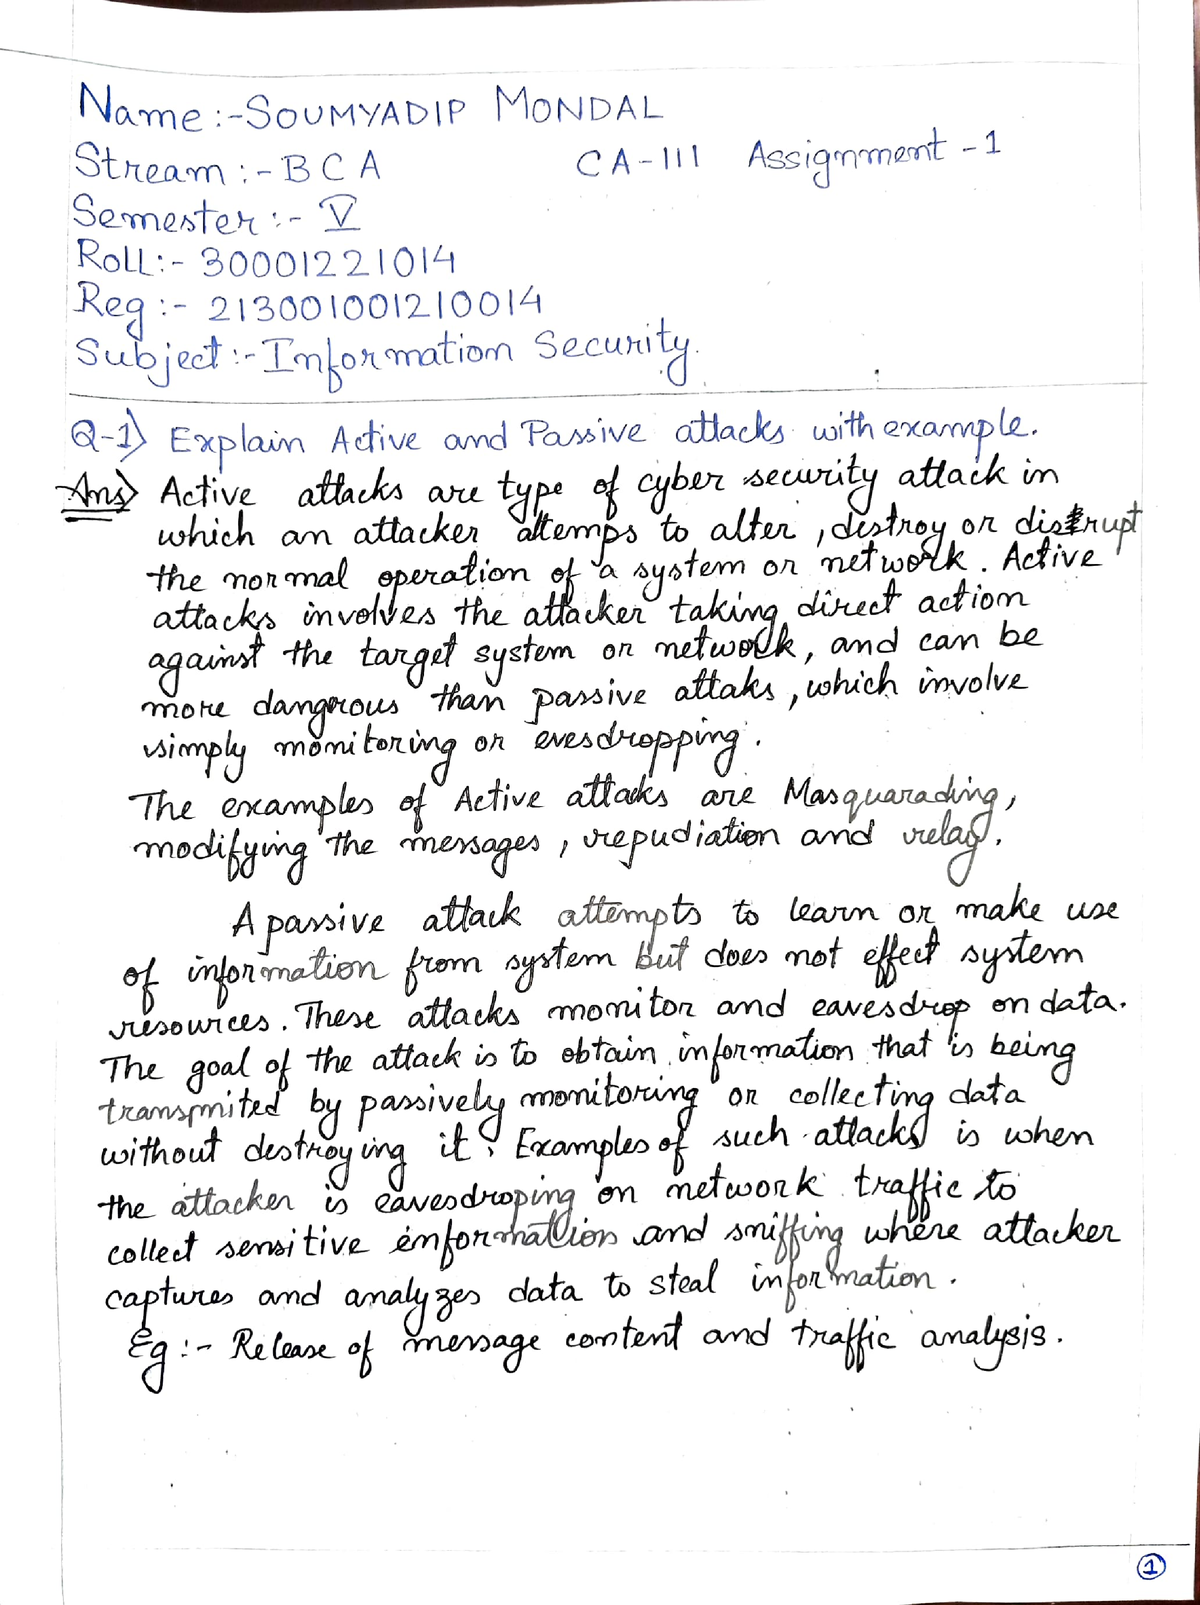 Name :- SOUMYADIP MONDAL
Stream :- BCA CA-III Assignment - 1
Semester :- V
Roll :- 30001221014
Reg :- 213001001210014
Subject :- Information Security.
Q-1) Explain Active and Passive attacks with example.
Ans) Active attacks are type of cyber security attack in
which an attacker attemps to alter, destroy or distrupt
the normal operation of a system or network. Active
attacks involves the attacker taking direct action
against the target system or network, and can be
more dangorous than passive attaks, which involve
simply monitoring or evesdropping.
The examples of Active attacks are Masquarading,
modifying the messages, repudiation and relay.
A passive attack attempts to learn or make use
of information from system but does not effect system
resources. These attacks monitor and eavesdrop on data.
The goal of the attack is to obtain information that is being
transmited by passively monitoring or collecting data
without destroying it. Examples of such attacks is when
the attacker is eavesdroping on network traffic to
collect sensitive information and sniffing where attacker
captures and analyzes data to steal information.
Eg :- Release of message content and traffic analysis.
1